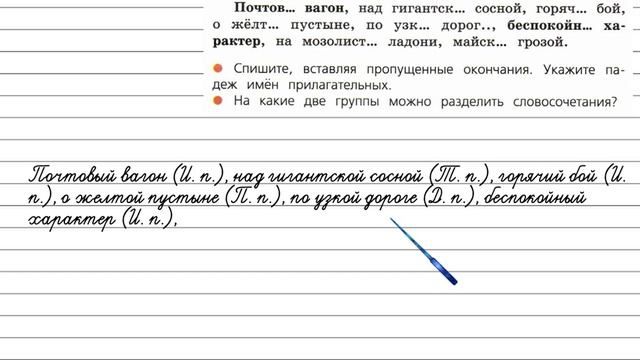 Почтов... вагон, над гигантск... сосной, горяч... бой,
о жёлт... пустыне, по узк... дорог.., беспокойн... ха-
рактер, на мозолист... ладони, майск... грозой.
Спишите, вставляя пропущенные окончания. Укажите па-
деж имён прилагательных.
На какие две группы можно разделить словосочетания?
Почтовый вагон (И. п.), над гигантской сосной (Т. п.), горячий бой (И.
п.), о желтой пустыне (П. п.), по узкой дороге (Д. п.), беспокойный
характер (И. п.),